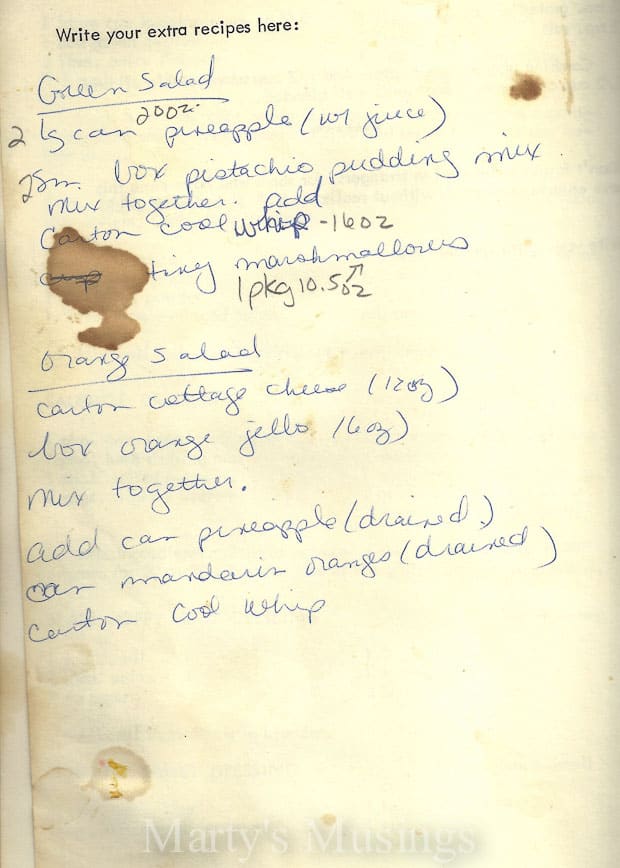 Write your extra recipes here:
Green Salad
20oz.
2 lg can pineapple (w/ juice)
2 Sm. box pistachio pudding mix
mix together. add
Carton cool whip - 16oz
tiny marshmallows
1 pkg 10.5oz
Orange Salad
carton cottage cheese (12oz)
box orange jello (6oz)
mix together.
add can pineapple (drained)
can mandarin oranges (drained)
carton cool whip
Marty's Musings